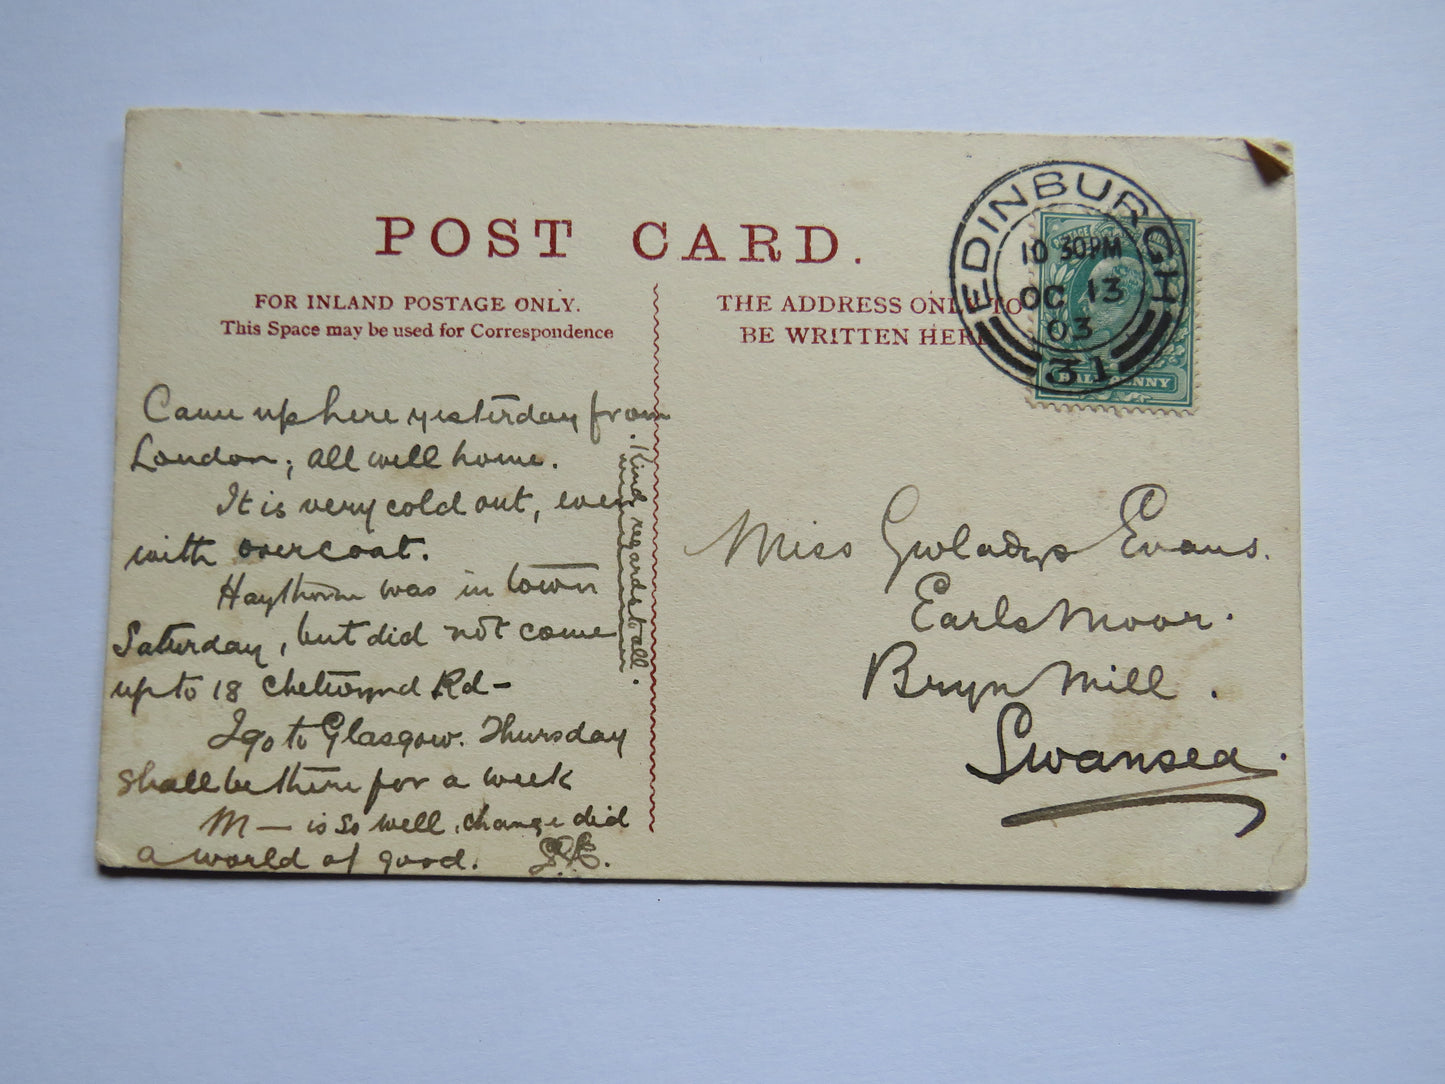 POST CARD.
FOR INLAND POSTAGE ONLY.
This Space may be used for Correspondence
THE ADDRESS ONLY TO
BE WRITTEN HERE
EDINBURGH
10 30 PM
OC 13
03
31
POSTAGE
HALFPENNY
Came up here yesterday from
London; all well home.
It is very cold out, even
with overcoat.
Haythorne was in town
Saturday, but did not come
up to 18 Chetwynd Rd –
I go to Glasgow. Thursday
shall be there for a week
M — is so well, change did
a world of good.
Kind regards to all.
Miss Gwladys Evans.
Earls Moor.
Bryn Mill.
Swansea.